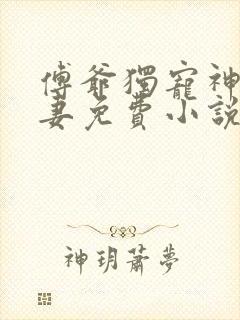 傅爺獨寵神
妻免費小說
神玥蕭夢